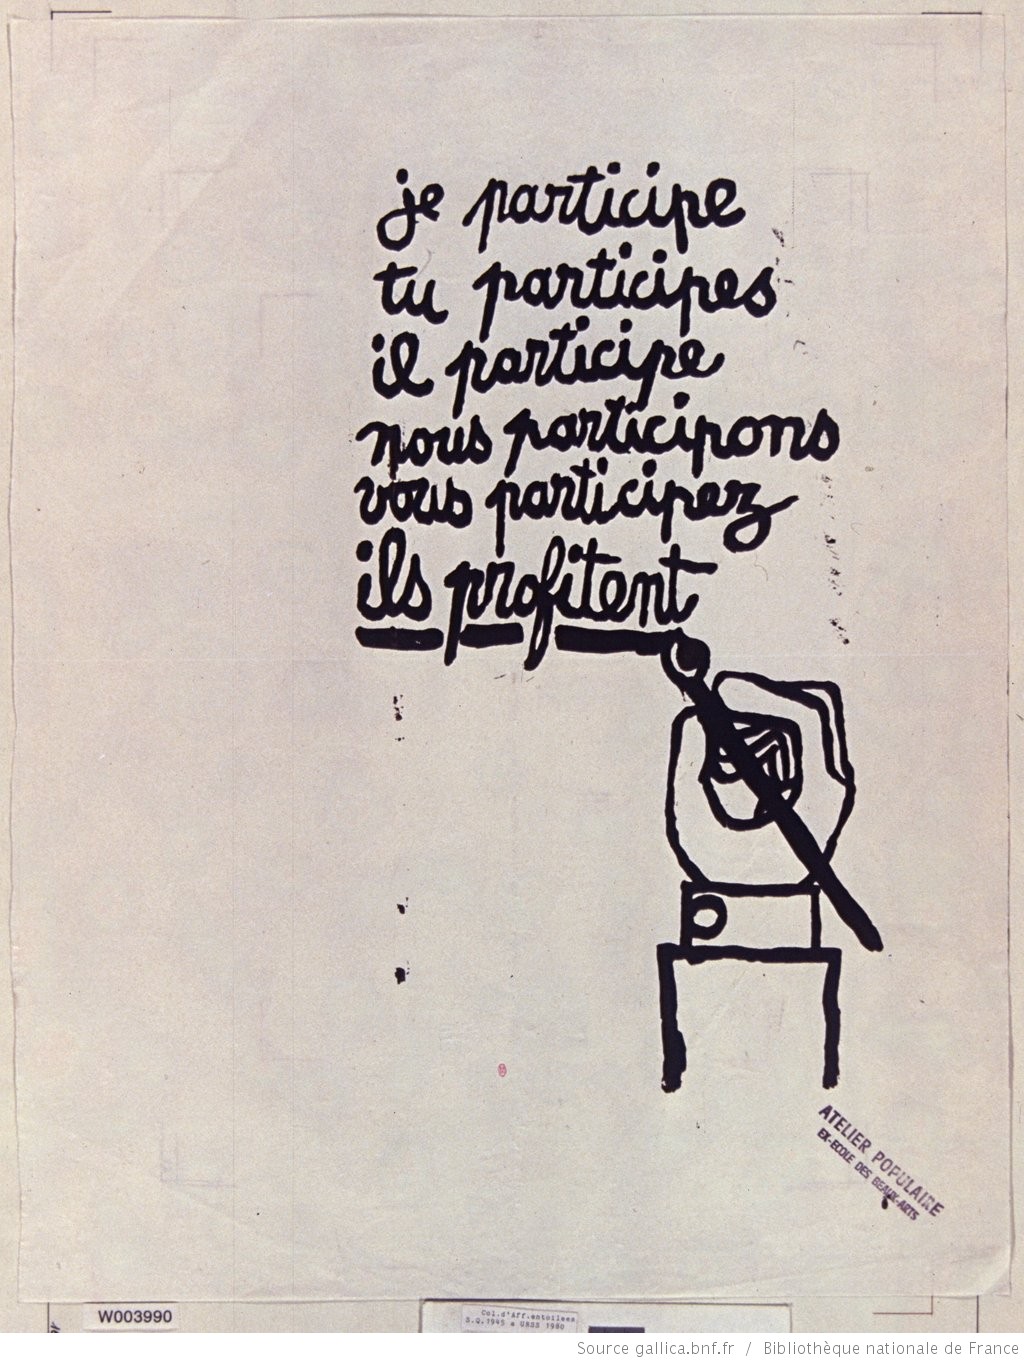 je participe
tu participes
il participe
nous participons
vous participez
ils profitent
ATELIER POPULAIRE
EX-ECOLE DES BEAUX-ARTS
W003990
Col.d'Aff.entoilees
S.Q.1945 à URSS 1980
Source gallica.bnf.fr / Bibliothèque nationale de France